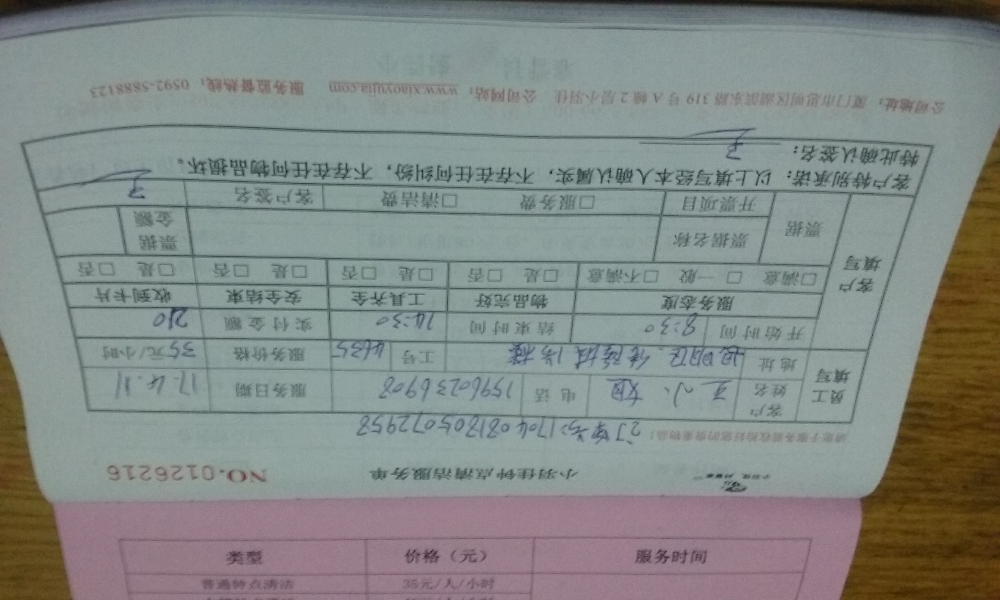 小羽佳钟点清洁服务单 NO.0126216
请您于服务前收拾好您的贵重物品！ 订单号:170408131805072958
员工填写 客户姓名 王小姐 电话 15960236908 服务日期 17.4.11
地址 工号 4635 服务价格 35元/小时
开始时间 8:30 结束时间 14:30 实付金额 210
客户填写 服务态度 物品完好 工具齐全 安全结束 收到卡片
□满意 □一般 □不满意 □是 □否 □是 □否 □是 □否 □是 □否
票据 票据名称 票据金额
开票项目 □服务费 □清洁费 客户签名 王
客户特别承诺：以上填写经本人确认属实，不存在任何纠纷，不存在任何物品损坏。
特此确认签名： 王
公司地址：厦门市思明区湖滨东路 319 号 A 幢 2 层小羽佳 公司网站：www.xiaoyujia.com 服务监督热线：0592-5888123
类型 价格（元） 服务时间
普通钟点清洁 35元/人/小时